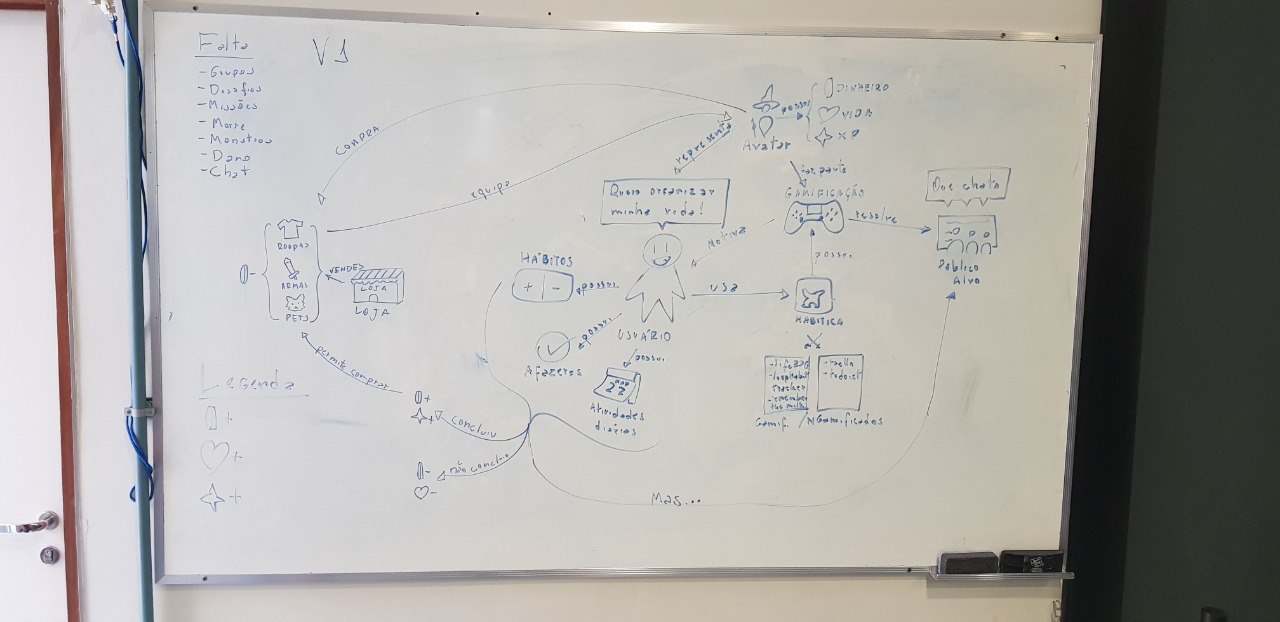 Falta
- Grupos
- Desafios
- Missões
- Morte
- Monstros
- Dano
- Chat
V1
COMPRA
equipa
representa
Avatar
possui
DINHEIRO
VIDA
XP
Quero organizar
minha vida!
GAMIFICAÇÃO
Motiva
resolve
Que chato
Público
Alvo
ROUPAS
ARMAS
PETS
VENDE
LOJA
LOJA
HÁBITOS
+ -
possui
USUÁRIO
usa
possui
HABITICA
possui
Afazeres
possui
22
Atividades
diárias
- trello
- todoist
Gamif.
NGamificados
permite comprar
concluiu
não concluiu
Mas...
Legenda
+
+
+